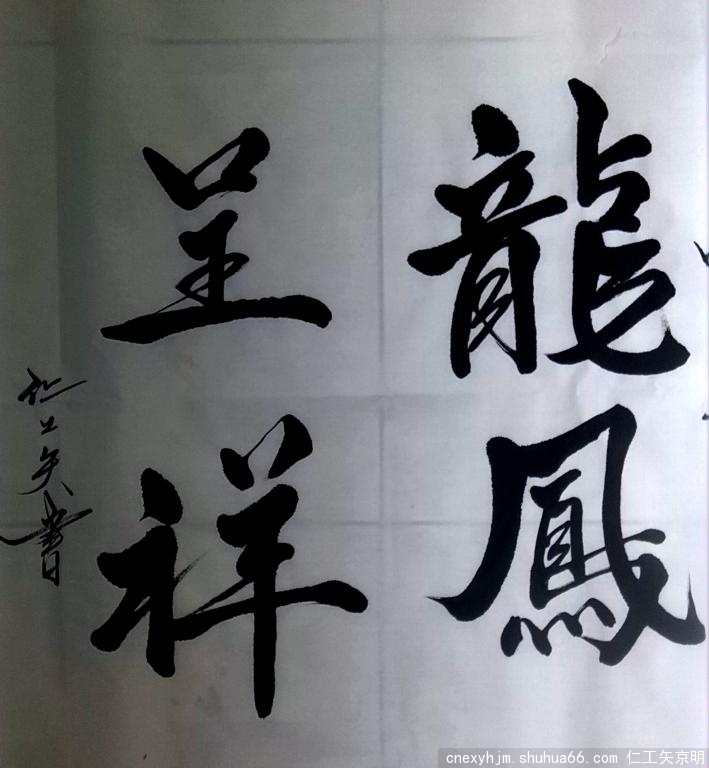 龍鳳
呈祥
仁工矢書
cnexyhjm.shuhua66.com 仁工矢京明